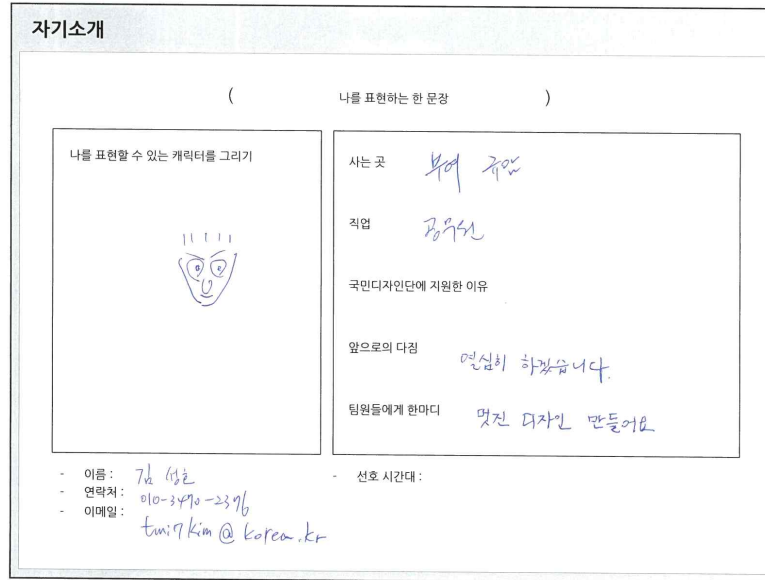 자기소개
( 나를 표현하는 한 문장 )
나를 표현할 수 있는 캐릭터를 그리기
사는 곳 부여 규암
직업 공무원
국민디자인단에 지원한 이유
앞으로의 다짐 열심히 하겠습니다.
팀원들에게 한마디 멋진 디자인 만들어요
- 이름 : 김성호
- 연락처 : 010-3470-2376
- 이메일 : twi7kim@korea.kr
- 선호 시간대 :